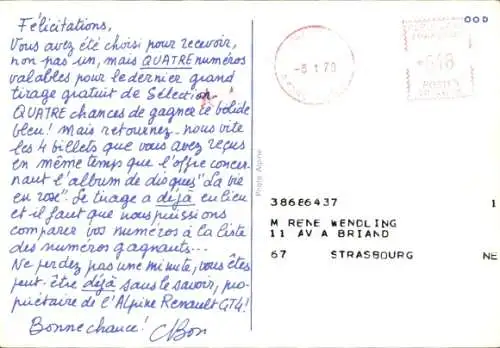 Félicitations,
Vous avez été choisi pour recevoir,
non pas un, mais QUATRE numéros
valables pour le dernier grand
tirage gratuit de Sélection
QUATRE chances de gagner ce bolide
bleu! Mais retournez-nous vite
les 4 billets que vous avez reçus
en même temps que l'offre concer-
nant l'album de disques "La vie
en rose". Le tirage a déjà eu lieu
et il faut que nous puissions
comparer vos numéros à la liste
des numéros gagnants...
Ne perdez pas une minute, vous êtes
peut-être déjà sans le savoir, pro-
priétaire de l'Alpine Renault GT4!
Bonne chance! CBon
Photo Alpine
-5 1 78
POSTES
000
38686437 1
M RENE WENDLING
11 AV A BRIAND
67 STRASBOURG NE